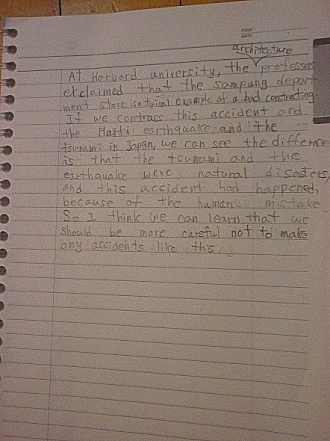 PAGE
DATE
architecture
At Harvard university, the professor
exclaimed that the sampung depart-
ment store is typical example of a bad constructing.
If we contrast this accident and
the Haitii earthquake and the
tsunami in Japan, we can see the diffence
is that the tsunami and the
earthquake were natural disasters,
and this accident had happened,
because of the human mistake
So I think we can learn that we
should be more careful not to make
any accidents like this.